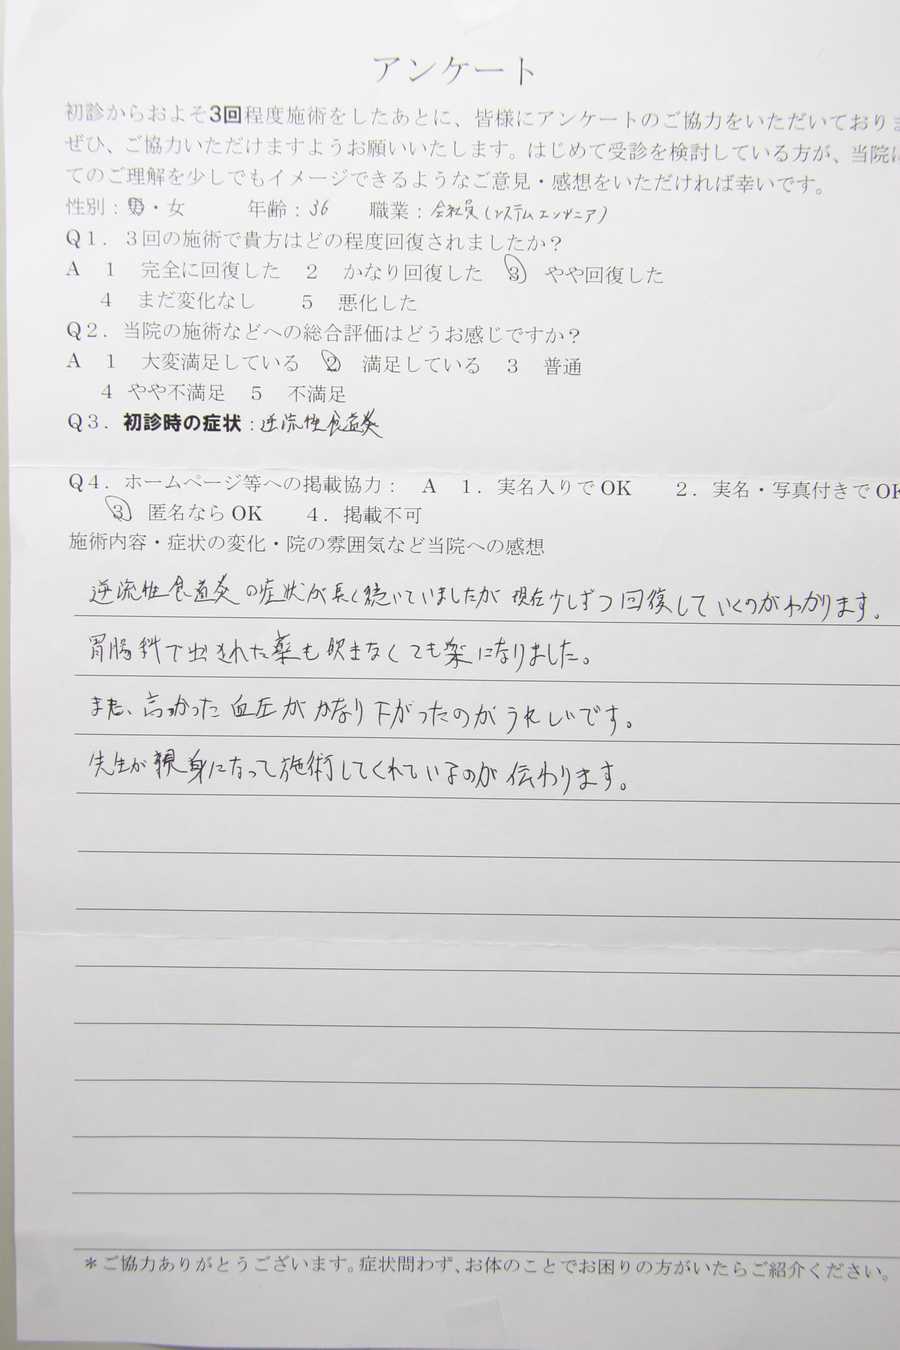 アンケート
初診からおよそ3回程度施術をしたあとに、皆様にアンケートのご協力をいただいておりま
ぜひ、ご協力いただけますようお願いいたします。はじめて受診を検討している方が、当院に
てのご理解を少しでもイメージできるようなご意見・感想をいただければ幸いです。
性別：男・女　年齢：36　職業：会社員（システムエンジニア）
Q1．3回の施術で貴方はどの程度回復されましたか？
A　1　完全に回復した　2　かなり回復した　3　やや回復した
4　まだ変化なし　5　悪化した
Q2．当院の施術などへの総合評価はどうお感じですか？
A　1　大変満足している　2　満足している　3　普通
4　やや不満足　5　不満足
Q3．初診時の症状：逆流性食道炎
Q4．ホームページ等への掲載協力：　A　1．実名入りでOK　2．実名・写真付きでOK
3　匿名ならOK　4．掲載不可
施術内容・症状の変化・院の雰囲気など当院への感想
逆流性食道炎の症状が長く続いていましたが現在少しずつ回復していくのがわかります。
胃腸科で出された薬も飲まなくても楽になりました。
また、高かった血圧がかなり下がったのがうれしいです。
先生が親身になって施術してくれているのが伝わります。
＊ご協力ありがとうございます。症状問わず、お体のことでお困りの方がいたらご紹介ください。